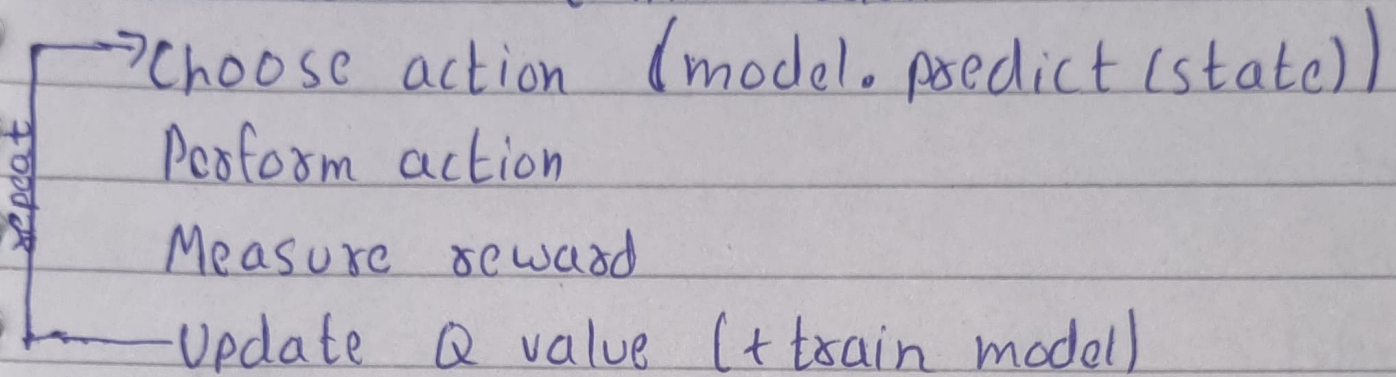 Choose action (model.predict(state))
Perform action
repeat
Measure reward
Update Q value (+ train model)